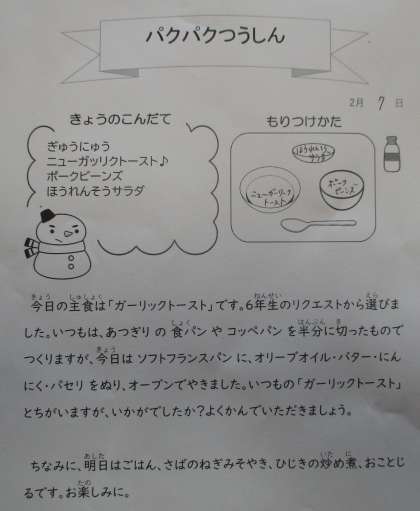 パクパクつうしん
2月 7 日
きょうのこんだて
ぎゅうにゅう
ニューガッリクトースト♪
ポークビーンズ
ほうれんそうサラダ
もりつけかた
ほうれんそう
サラダ
ニューガーリック
トースト
ポーク
ビーンズ
今日の主食は「ガーリックトースト」です。6年生のリクエストから選び
ました。いつもは、あつぎり の 食パン や コッペパン を半分に切ったもので
つくりますが、今日は ソフトフランスパン に、オリーブオイル・バター・にん
にく・パセリ をぬり、オーブンでやきました。いつもの「ガーリックトースト」
とちがいますが、いかがでしたか？よくかんでいただきましょう。
ちなみに、明日はごはん、さばのねぎみそやき、ひじきの炒め煮、おことじ
るです。お楽しみに。